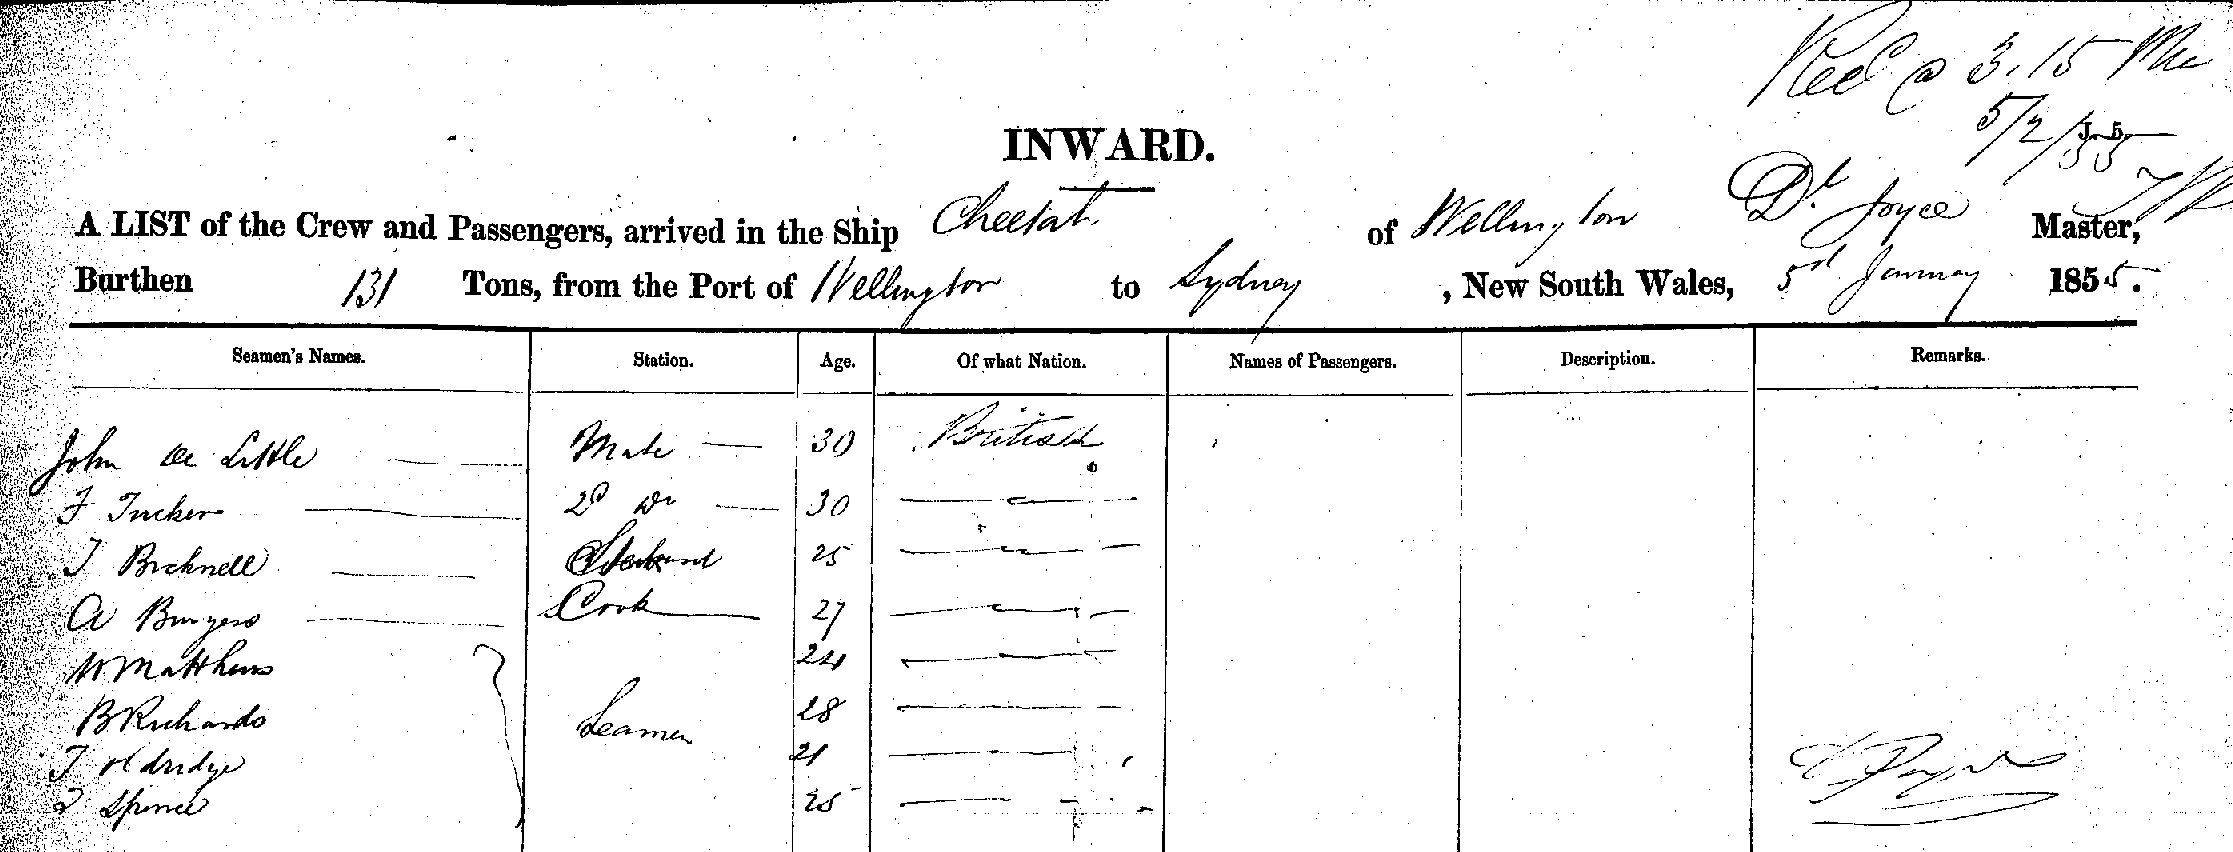 Recd @ 3.15 Pm
5/2/55
INWARD.
A LIST of the Crew and Passengers, arrived in the Ship Cheetah of Wellington Dl. Joyce Master,
Burthen 131 Tons, from the Port of Wellington to Sydney, New South Wales, 5d January 1855.
Seamen's Names. Station. Age. Of what Nation. Names of Passengers. Description. Remarks.
John De Little Mate 30 British
F Tucker 2d Do 30
T Bicknell Steward 25
A Burgess Cook 27
W Matthews 24
B Richards Seamen 28
T Oldridge 21
T Spence 25